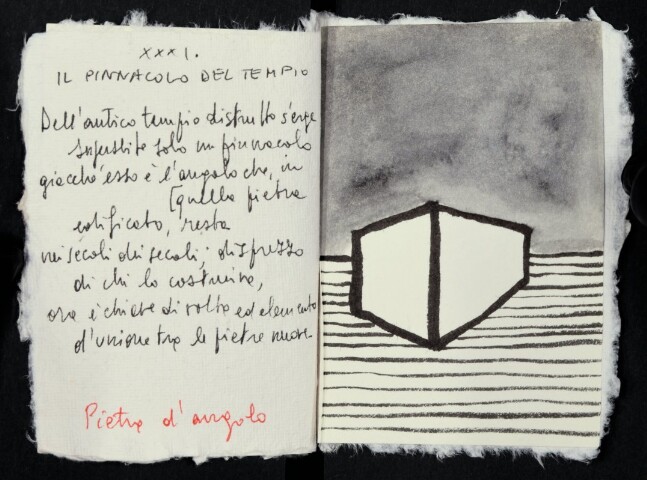 XXXI.
IL PINNACOLO DEL TEMPIO
Dell'antico tempio distrutto s'erge
superstite solo un pinnacolo
giacché esso è l'angolo che, in
[quella pietra
edificato, resta
nei secoli dei secoli; disprezzo
di chi lo costruiva,
ora è chiave di volta ed elemento
d'unione tra le pietre nuove
Pietra d'angolo